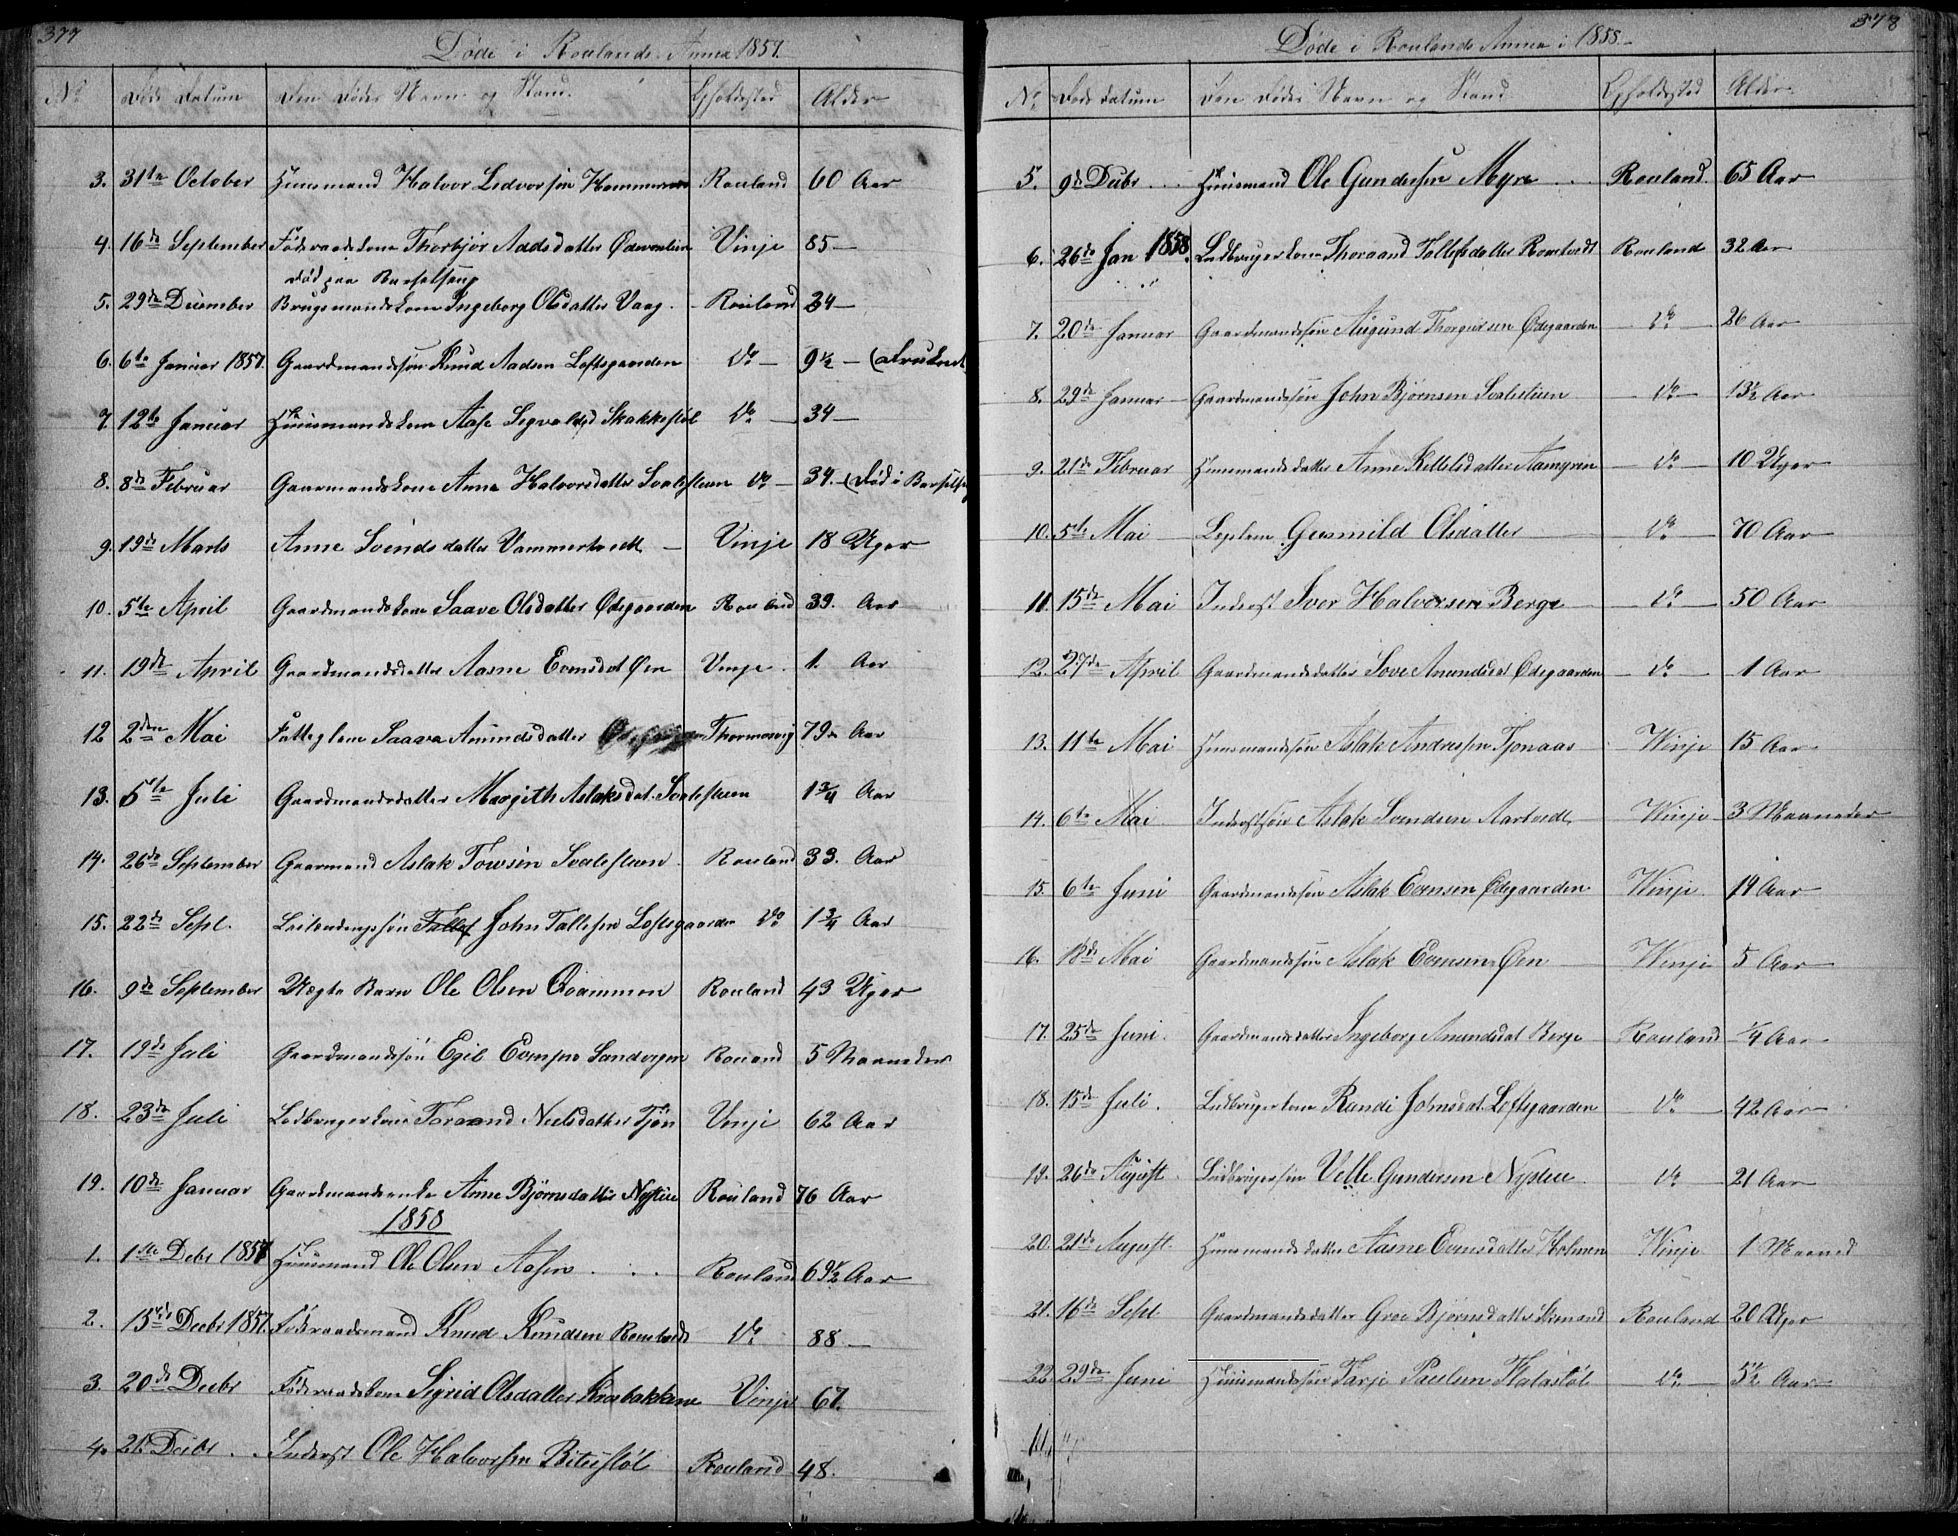 377
Døde i Roulands Annex 1857.
No Døds Datum Den Dødes Navn og Stand. Opholdssted Alder
3. 31te October Huusmand Halvor Ledvorsøn Rouland 60 Aar
4. 16de September Føderaadskone Thorbjør Aadsdatter Vinje 85 —
død paa Barselseng
5. 29de December Brugsmandskone Ingeborg Olsdatter Vaag. Rouland 24 —
6. 6te Januar 1857. Gaardmandssøn Knud Aadsen Loftsgaarden Do — 9½ — (druknet
7. 12te Januar Huusmandskone Aase Sigvaldsd Skakkestøl Do — 34 —
8. 8de Februar Gaarmandskone Anne Halvorsdatter Svalesteen Do — 34. — (Død i Barselse
9. 19de Marts Anne Svendsdatter Vammertvedt — Vinje 18 Uger
10. 5te April Gaardmandskone Saave Olsdatter Ødegaarden Rouland 39. Aar
11. 19de April Gaardmandsdatter Aasne Evensdat Øen Vinje. 1. Aar
12 2den Mai Fatteglem Saave Amundsdatter 79 Aar
13. 5te Juli Gaardmandsdatter Margith Aslaksdat. Svalesteen 1¾ Aar
14. 26de September Gaarmand Aslak Tovsen Svalesteen. Rouland 33. Aar
15. 22de Sept. Leilendingssøn Tallef John Tallefsen Loftsgaarden Do 1¾ Aar
16. 9de September Uægte Barn Ole Olsen Qvammen Rouland 43 Uger
17. 19de Juli Gaardmandssøn Egil Evensen Rouland 5 Maaneder
18. 23de Juli Ledbrugerkone Toraand Neelsdatter Tjøn Vinje 62 Aar
19. 10de Januar Gaardmandsenke Anne Bjørnsdatter Nysteen Rouland 76 Aar
1858
1. 1ste Debr 1857 Huusmand Ole Olsen Aasen . . . Rouland 69½ Aar
2. 15de Decbr 1857. Føderaadsmand Knud Knudsen Romtvedt Do 88 —
3. 20de Decbr Føderaadskone Sigrid Olsdatter Vinje 67.
4. 21 Decbr . Inderst Ole Halvorsen Bitustøl Rouland 48.
378
Døde i Roulands Annex i 1858.—
No Døds datum Den Dødes Navn og Stand Opholdssted Alder
5. 9de Decbr . . . Huusmand Ole Gundersen Myre . . . Rouland. 65 Aar
6. 26de Jan 1858. Ledbrugerkone Thoraand Tallefsdatter Romtvedt Rouland 32 Aar
7. 20de Januar Gaardmandssøn Augund Thorgersen Ødegaarden — do — 26 Aar
8. 29de Januar — Gaardmandssøn John Bjørnsen Svalesteen — do — 13½ Aar
9. 21de Februar Huusmandsdatter Anne Kittelsdatter Aamgren — do — 10 Uger
10. 5te Mai Leglem Gunnild Olsdatter — do — 70 Aar
11. 15de Mai Inderst Iver Halvorsen Berge — do — 50 Aar
12. 27de April Gaardmandsdatter Sove Amundsdat Ødegaarden — do — 1 Aar
13. 11te Mai Huusmandssøn Aslak Andressen Tjønaas Winje 15 Aar
14. 6te Mai. Inderstsøn Aslak Svendsen Aartvedt Winje 3 Maaneder
15. 6te Juni Gaardmandssøn Aslak Evensen Ødegaarden Winje. 14 Aar
16. 18de Mai Gaardmandssøn Aslak Evensen Øen Winje 5 Aar
17. 25de Juni. Gaardmandsdatter Ingeborg Amundsdat Berge Rouland ¼ Aar
18. 15de Juli. Ledbrugerkone Randi Johnsdat Loftsgaarden — do — 42 Aar
19. 26de August. Ledbrugersøn Velle Gundersen Nysteen — do — 21 Aar
20. 21de August. Huusmandsdatter Aasne Evensdatter Holmen Winje 1 Maaned
21. 16de Sept Gaardmandsdatter Groe Bjørnsdatter Rouland 20 Uger
22 29de Juni Huusmandssøn Tarje Paulsen Flatastøl — do — 5½ Aar